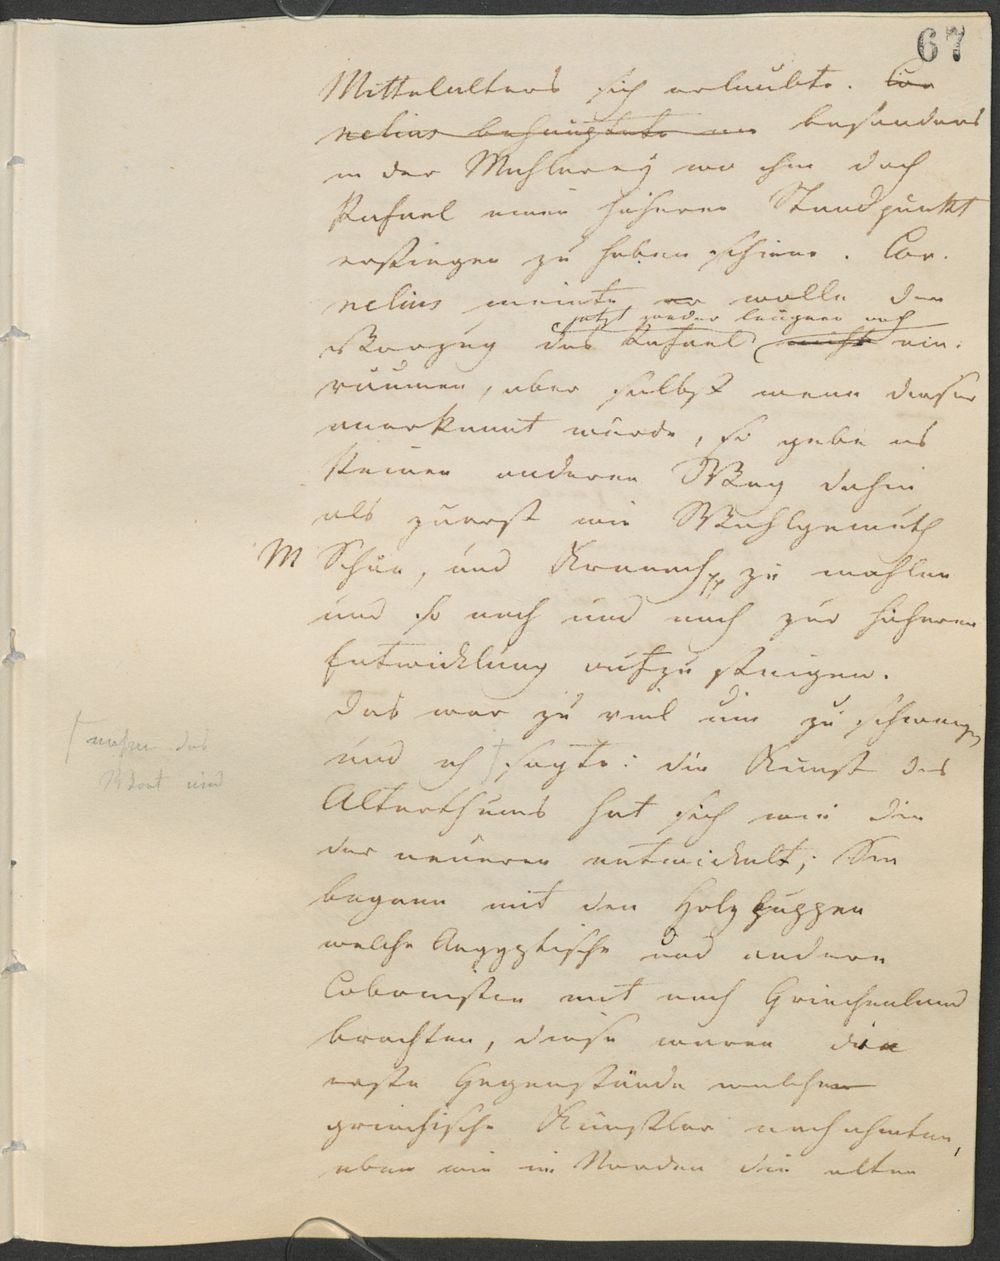 67
Mittelalters sich erlaubte. Cor
nelius behauptete er besonders
in der Mahlerey wo ihm doch
Rafael einen höheren Standpunkt
erstiegen zu haben schiene. Cor-
nelius meinte, er wolle den
jetzt weder leugnen noch
Vorzug des Rafael nicht ein-
räumen, aber selbst wenn dieser
anerkannt würde, so gebe es
keinen anderen Weg dahin
als zuerst wie Wohlgemuth
M Schön, und Kranach pp zu mahlen
und so nach und nach zur höheren
Entwicklung aufzu steigen.
Das war zu viel um zu schweigen
und ich sagte: die Kunst des
nahm das
Wort und
Alterthums hat sich wie die
der neueren entwickelt; Sie
begann mit den Holzpuppen
welche Aegyptische und andere
Colonisten mit nach Griechenland
brachten, diese waren die
erste Gegenstände welche
griechische Künstler nachahmten,
eben wie im Norden die alten